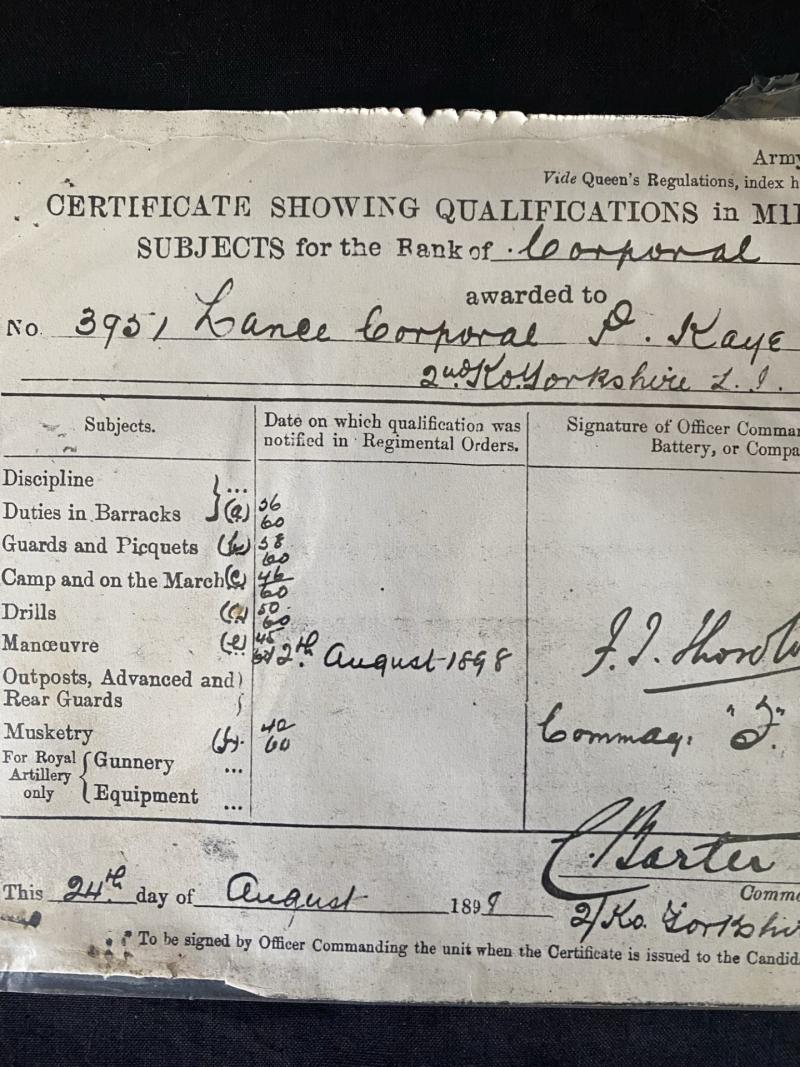 Army
Vide Queen's Regulations, index h
CERTIFICATE SHOWING QUALIFICATIONS in MIL
SUBJECTS for the Rank of Corporal
awarded to
No. 3951 Lance Corporal P. Kaye
2nd Ko Yorkshire L.I.
Subjects.
Date on which qualification was
notified in Regimental Orders.
Signature of Officer Comman
Battery, or Compa
Discipline ...
Duties in Barracks (a) 56/60
Guards and Picquets (b) 58/60
Camp and on the March (c) 46/60
Drills (d) 50/60
Manœuvre (e) 45/60
12th August 1898
Outposts, Advanced and
Rear Guards
F. J.
Commdg. "F".
Musketry (f) 42/60
For Royal Artillery only
Gunnery ...
Equipment ...
C. Barter
This 24th day of August 1898
Comma
2/Ko. Yorkshi
To be signed by Officer Commanding the unit when the Certificate is issued to the Candid